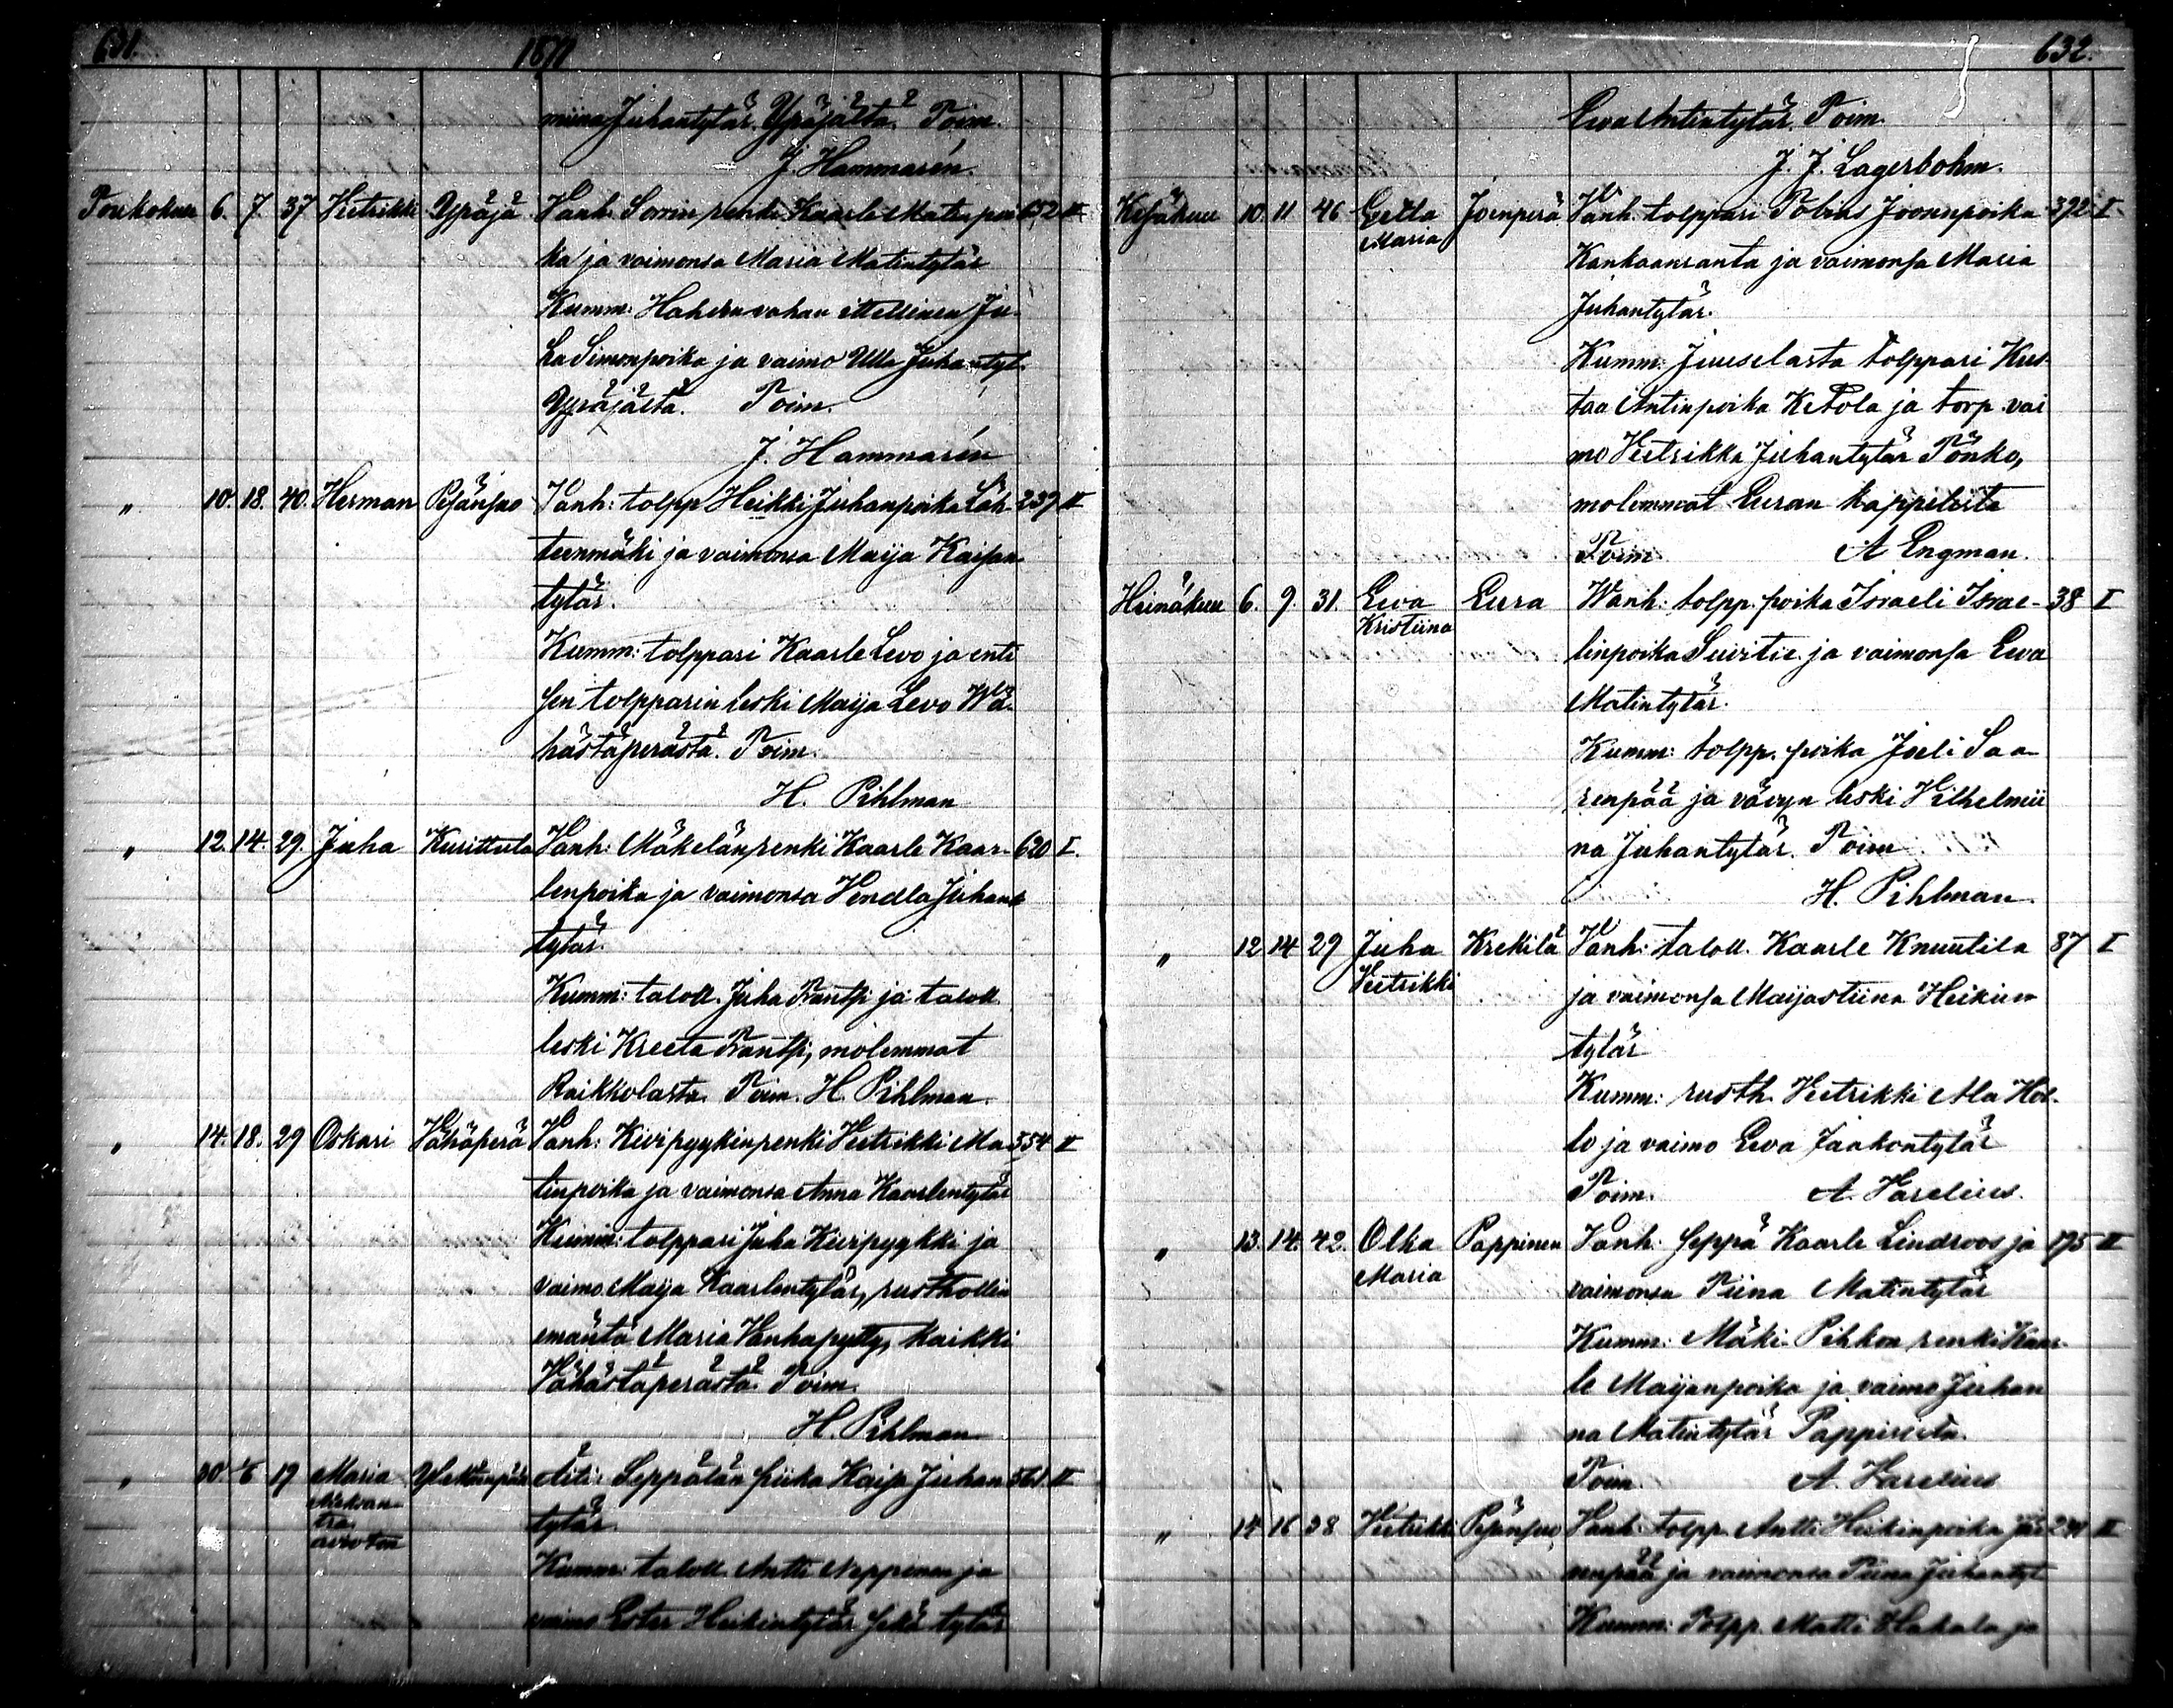 631. 1871
miina Juhantytär Ypäjältä. Toim.
J. Hammarén.
Toukokuu 6. 7. 37 Vietrikki Ypäjä Vanh. Sorrin renki Kaarle Matinpoi 652 II
ka ja vaimonsa Maria Matintytär
Kumm: ittellinen Ju-
ha Simonpoika ja vaimo Ulla Juhantyt.
Ypäjältä. Toim.
J. Hammarén
" 10. 18. 40. Herman Peränsuo Vanh: tolpp Heikki Juhanpoika Läh- 239 II
teenmäki ja vaimonsa Maija Kaisan
tytär.
Kumm: tolppari Kaarle Levo ja enti
sen tolpparin leski Maija Levo Wä-
hästäperästä. Toim.
H. Pihlman
" 12. 14. 29. Juha Kurittula Vanh: Mäkelän renki Kaarle Kaar- 620 I.
lenpoika ja vaimonsa Vendla Juhan
tytär.
Kumm: taloll. Juha Prantsi ja taloll
leski Kreeta Prantsi, molemmat
Raikkolasta. Toim. H. Pihlman.
" 14. 18. 29 Oskari Vähäperä Vanh: Kivipyykin renki Vietrikki Ma 354 II
tinpoika ja vaimonsa Anna Kaarlentytär
Kumm: tolppari Juha Kiripyykki ja
vaimo Maija Kaarlentytär, rusthollin
emäntä Maria Vanhapytty, kaikki
Vähästäperästä. Toim.
H. Pihlman
" 30. 19 Maria Yliskäänpää Äiti: Seppälän piika Kaisa Juhan 561 II
Aleksan
tra
avioton
tytär.
Kumm: taloll. Antti Nappinen ja
vaimo Ester Heikintytär sekä tytär
632.
Eeva Antintytär. Toim.
J. J. Lagerbohm.
Kesäkuu 10. 11 46 Eetla Joenperä Vanh. tolppari Tobias Joonunpoika 392 I
Maria
Kankaanranta ja vaimonsa Maria
Juhantytär.
Kumm. Juuselasta tolppari Kus-
taa Antinpoika Ketola ja torp. vai
mo Vietrikka Juhantytär Pönkö,
molemmat Euran kappelista
Toim. A Engman.
Heinäkuu 6. 9. 31. Eeva Eura Wanh: tolpp. poika Israeli Israe- 38 I
Kristiina
linpoika Suvitie ja vaimonsa Eeva
Matintytär.
Kumm: tolpp. poika Joeli Saa
renpää ja vävyn leski Vilhelmii
na Juhantytär. Toim
H. Pihlman.
" 12 14 29 Juha Krekilä Vanh: taloll. Kaarle Knuutila 87 I
Vietrikki
ja vaimonsa Maijastiina Heikin
tytär
Kumm: rusth. Vietrikki Ala Hol-
lo ja vaimo Eeva Jaakontytär
Toim. A. Harelius.
" 13. 14. 42. Olka Pappinen Vanh: seppä Kaarle Lindroos ja 195 II
Maria
vaimonsa Tiina Matintytär
Kumm: Mäki-Pihkon renki Kaar-
le Maijanpoika ja vaimo Juhan
na Matintytär Pappisista.
Toim. A. Harelius
" 14 16 38 Vietrikki Peränsuo, Vanh: tolpp. Antti Heikinpoika II
ja vaimonsa Tiina Juhantyt
Kumm: Tolpp. Matti Hakala ja